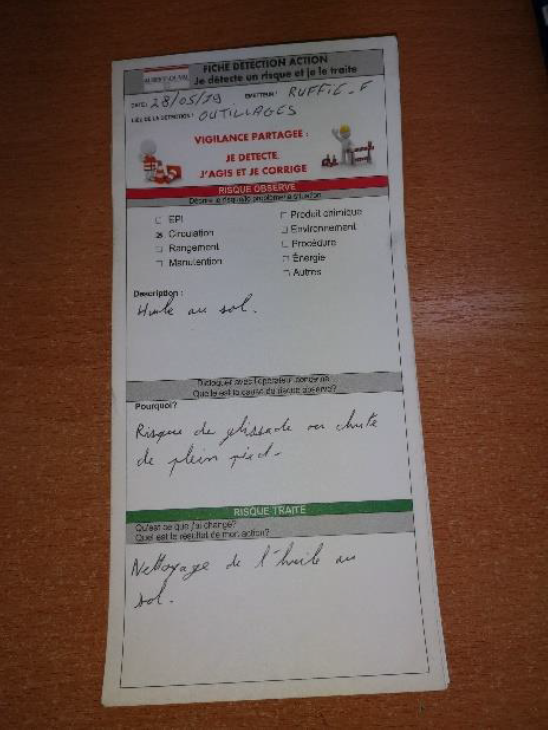 FICHE DETECTION ACTION
Je détecte un risque et je le traite
DATE: 28/05/19 EMETTEUR: RUFFIE. F
LIEU DE LA DETECTION: OUTILLAGES
VIGILANCE PARTAGEE :
JE DETECTE,
J'AGIS ET JE CORRIGE
RISQUE OBSERVE
EPI
Circulation
Rangement
Manutention
Produit chimique
Environnement
Procédure
Énergie
Autres
Description :
Huile au sol.
Dialoguer avec l'opérateur concerné
Quelle est la cause du risque observé?
Pourquoi?
Risque de glissade ou chute
de plein pied.
RISQUE TRAITE
Qu'est ce que j'ai changé?
Quel est le résultat de mon action?
Nettoyage de l'huile au
sol.